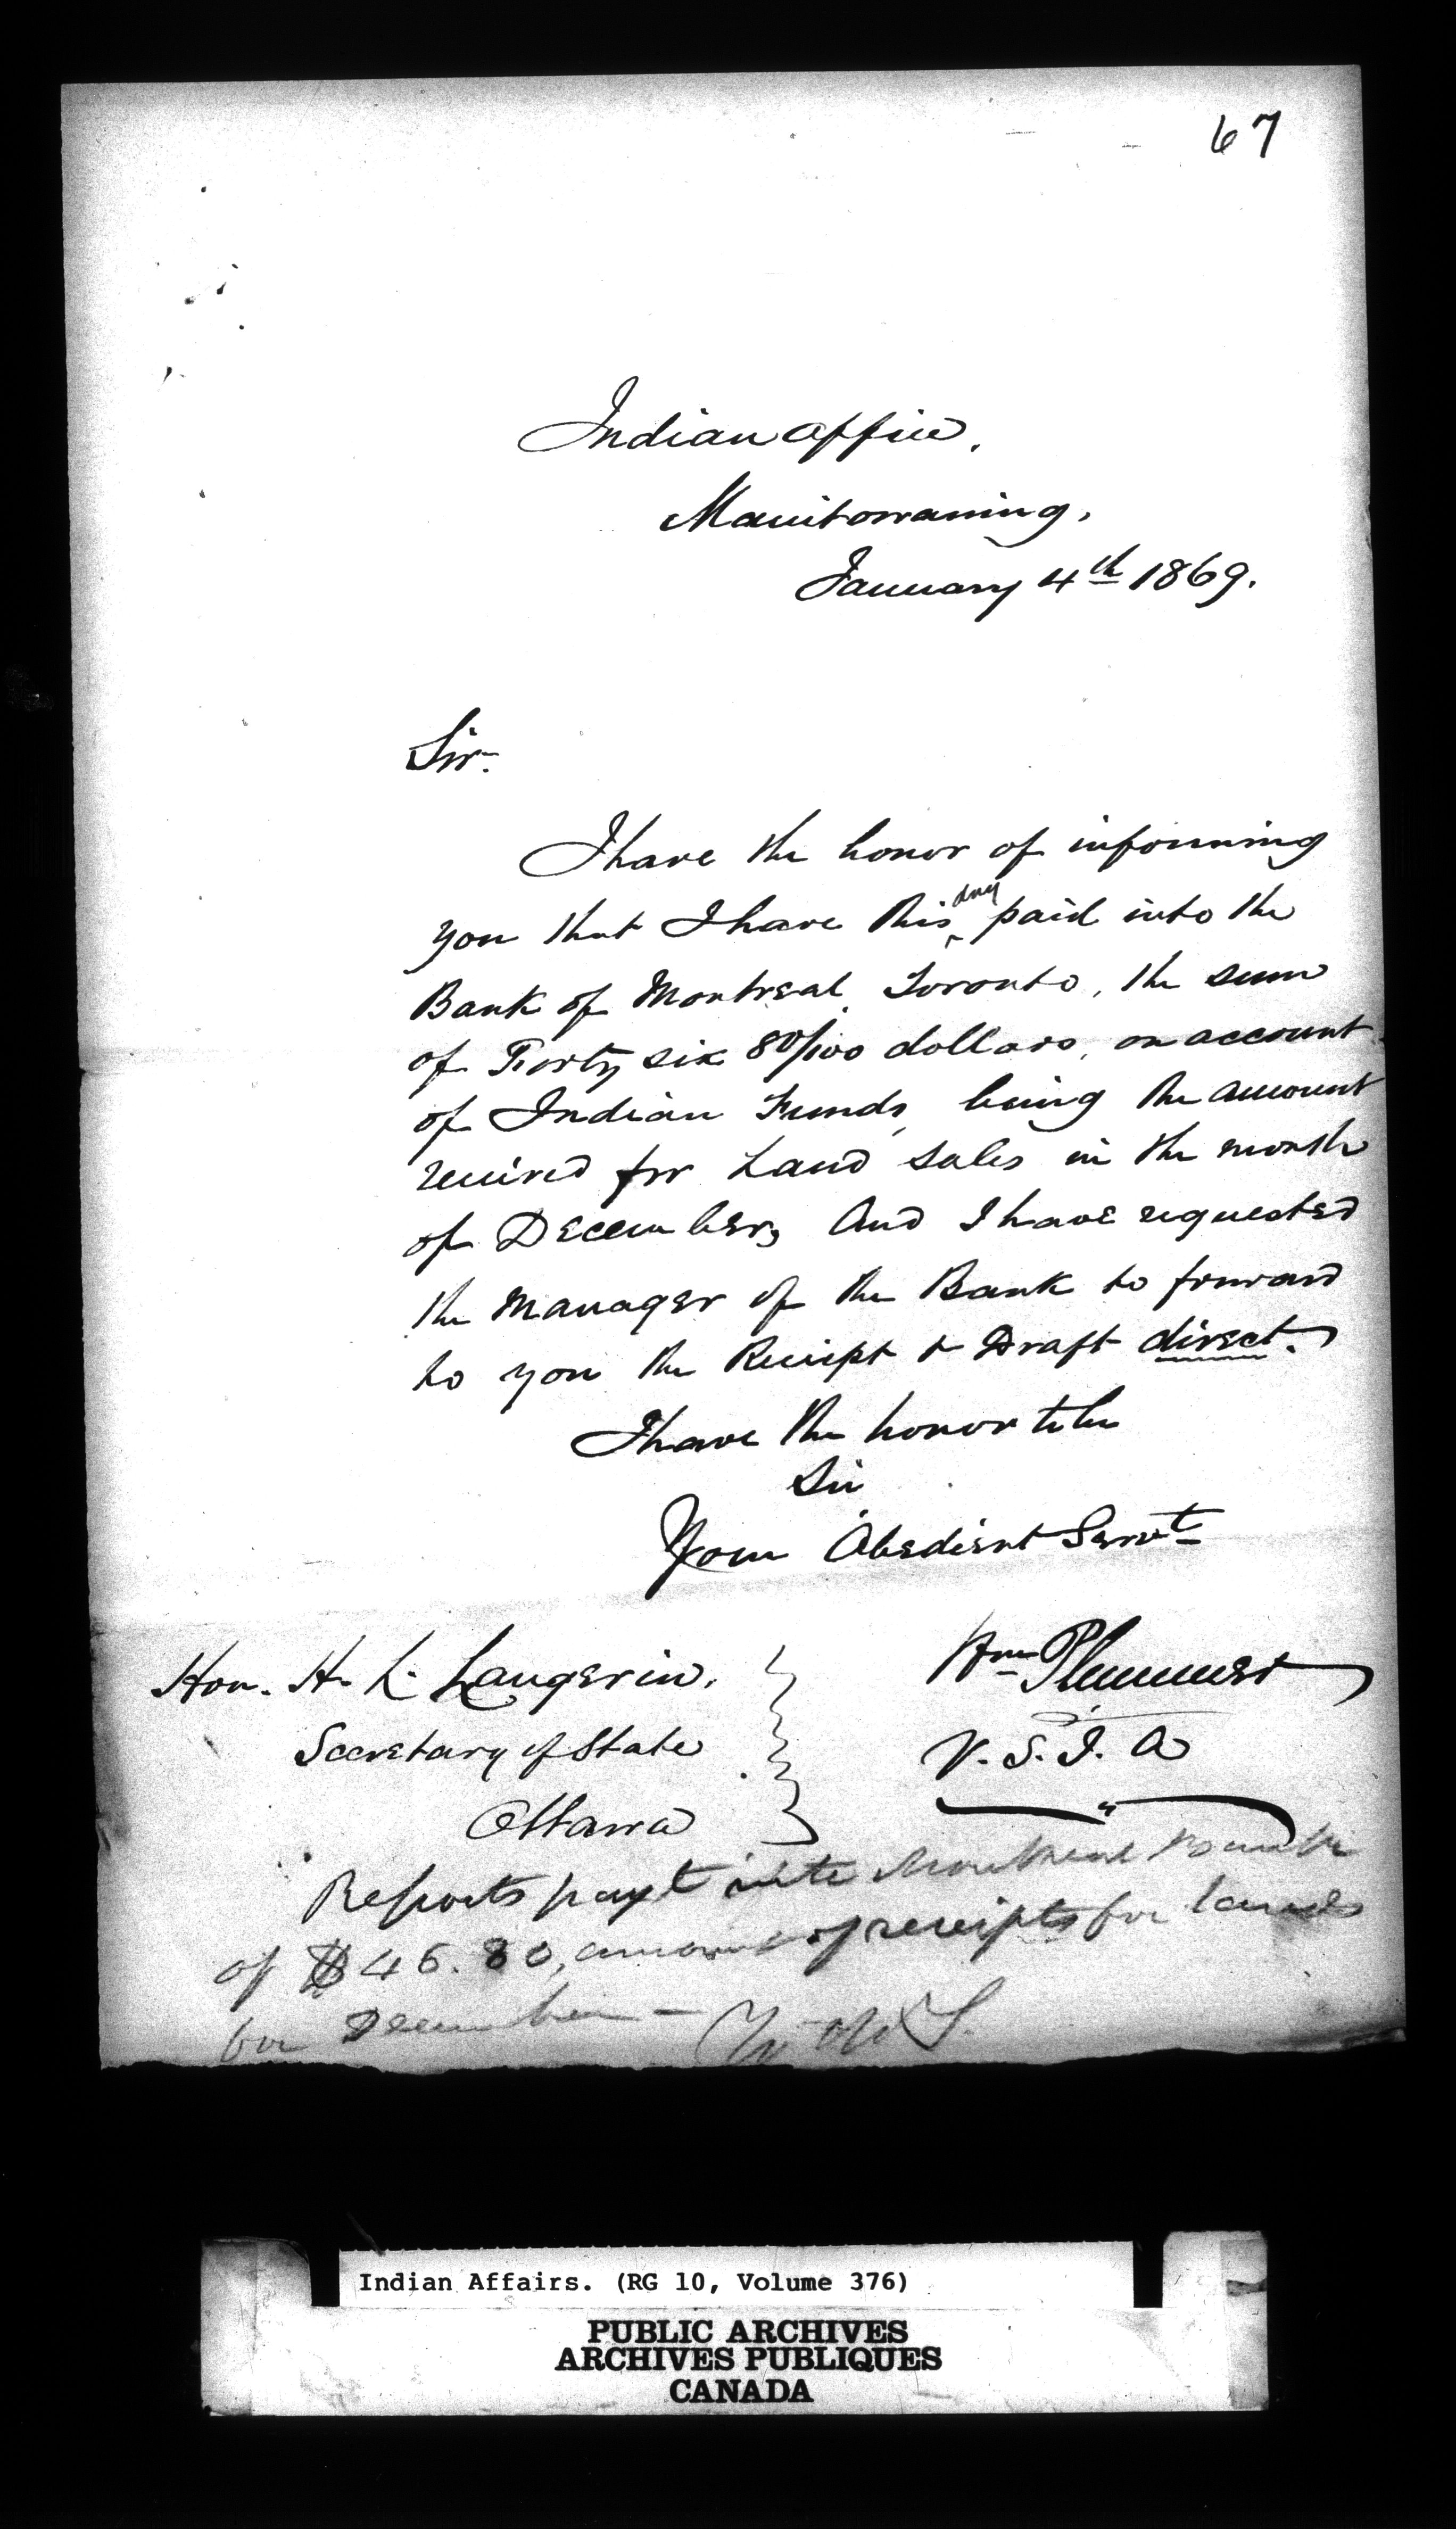 67
Indian Office,
Manitowaning,
January 4th 1869.
Sir,
I have the honor of informing
you that I have this day paid into the
Bank of Montreal, Toronto, the sum
of Forty six 80/100 dollars, on account
of Indian Funds, being the amount
received for Land Sales in the month
of December, And I have requested
the Manager of the Bank to forward
to you the Receipt & Draft direct.
I have the honor to be
Sir
Your Obedient Servt
Hon. H. L. Langevin,
Secretary of State
Ottawa
Wm Plummer
V. S. I. A
Reports payt into Montreal Bank
of $46.80, amount of receipts for lands
for December -
Indian Affairs. (RG 10, Volume 376)
PUBLIC ARCHIVES
ARCHIVES PUBLIQUES
CANADA